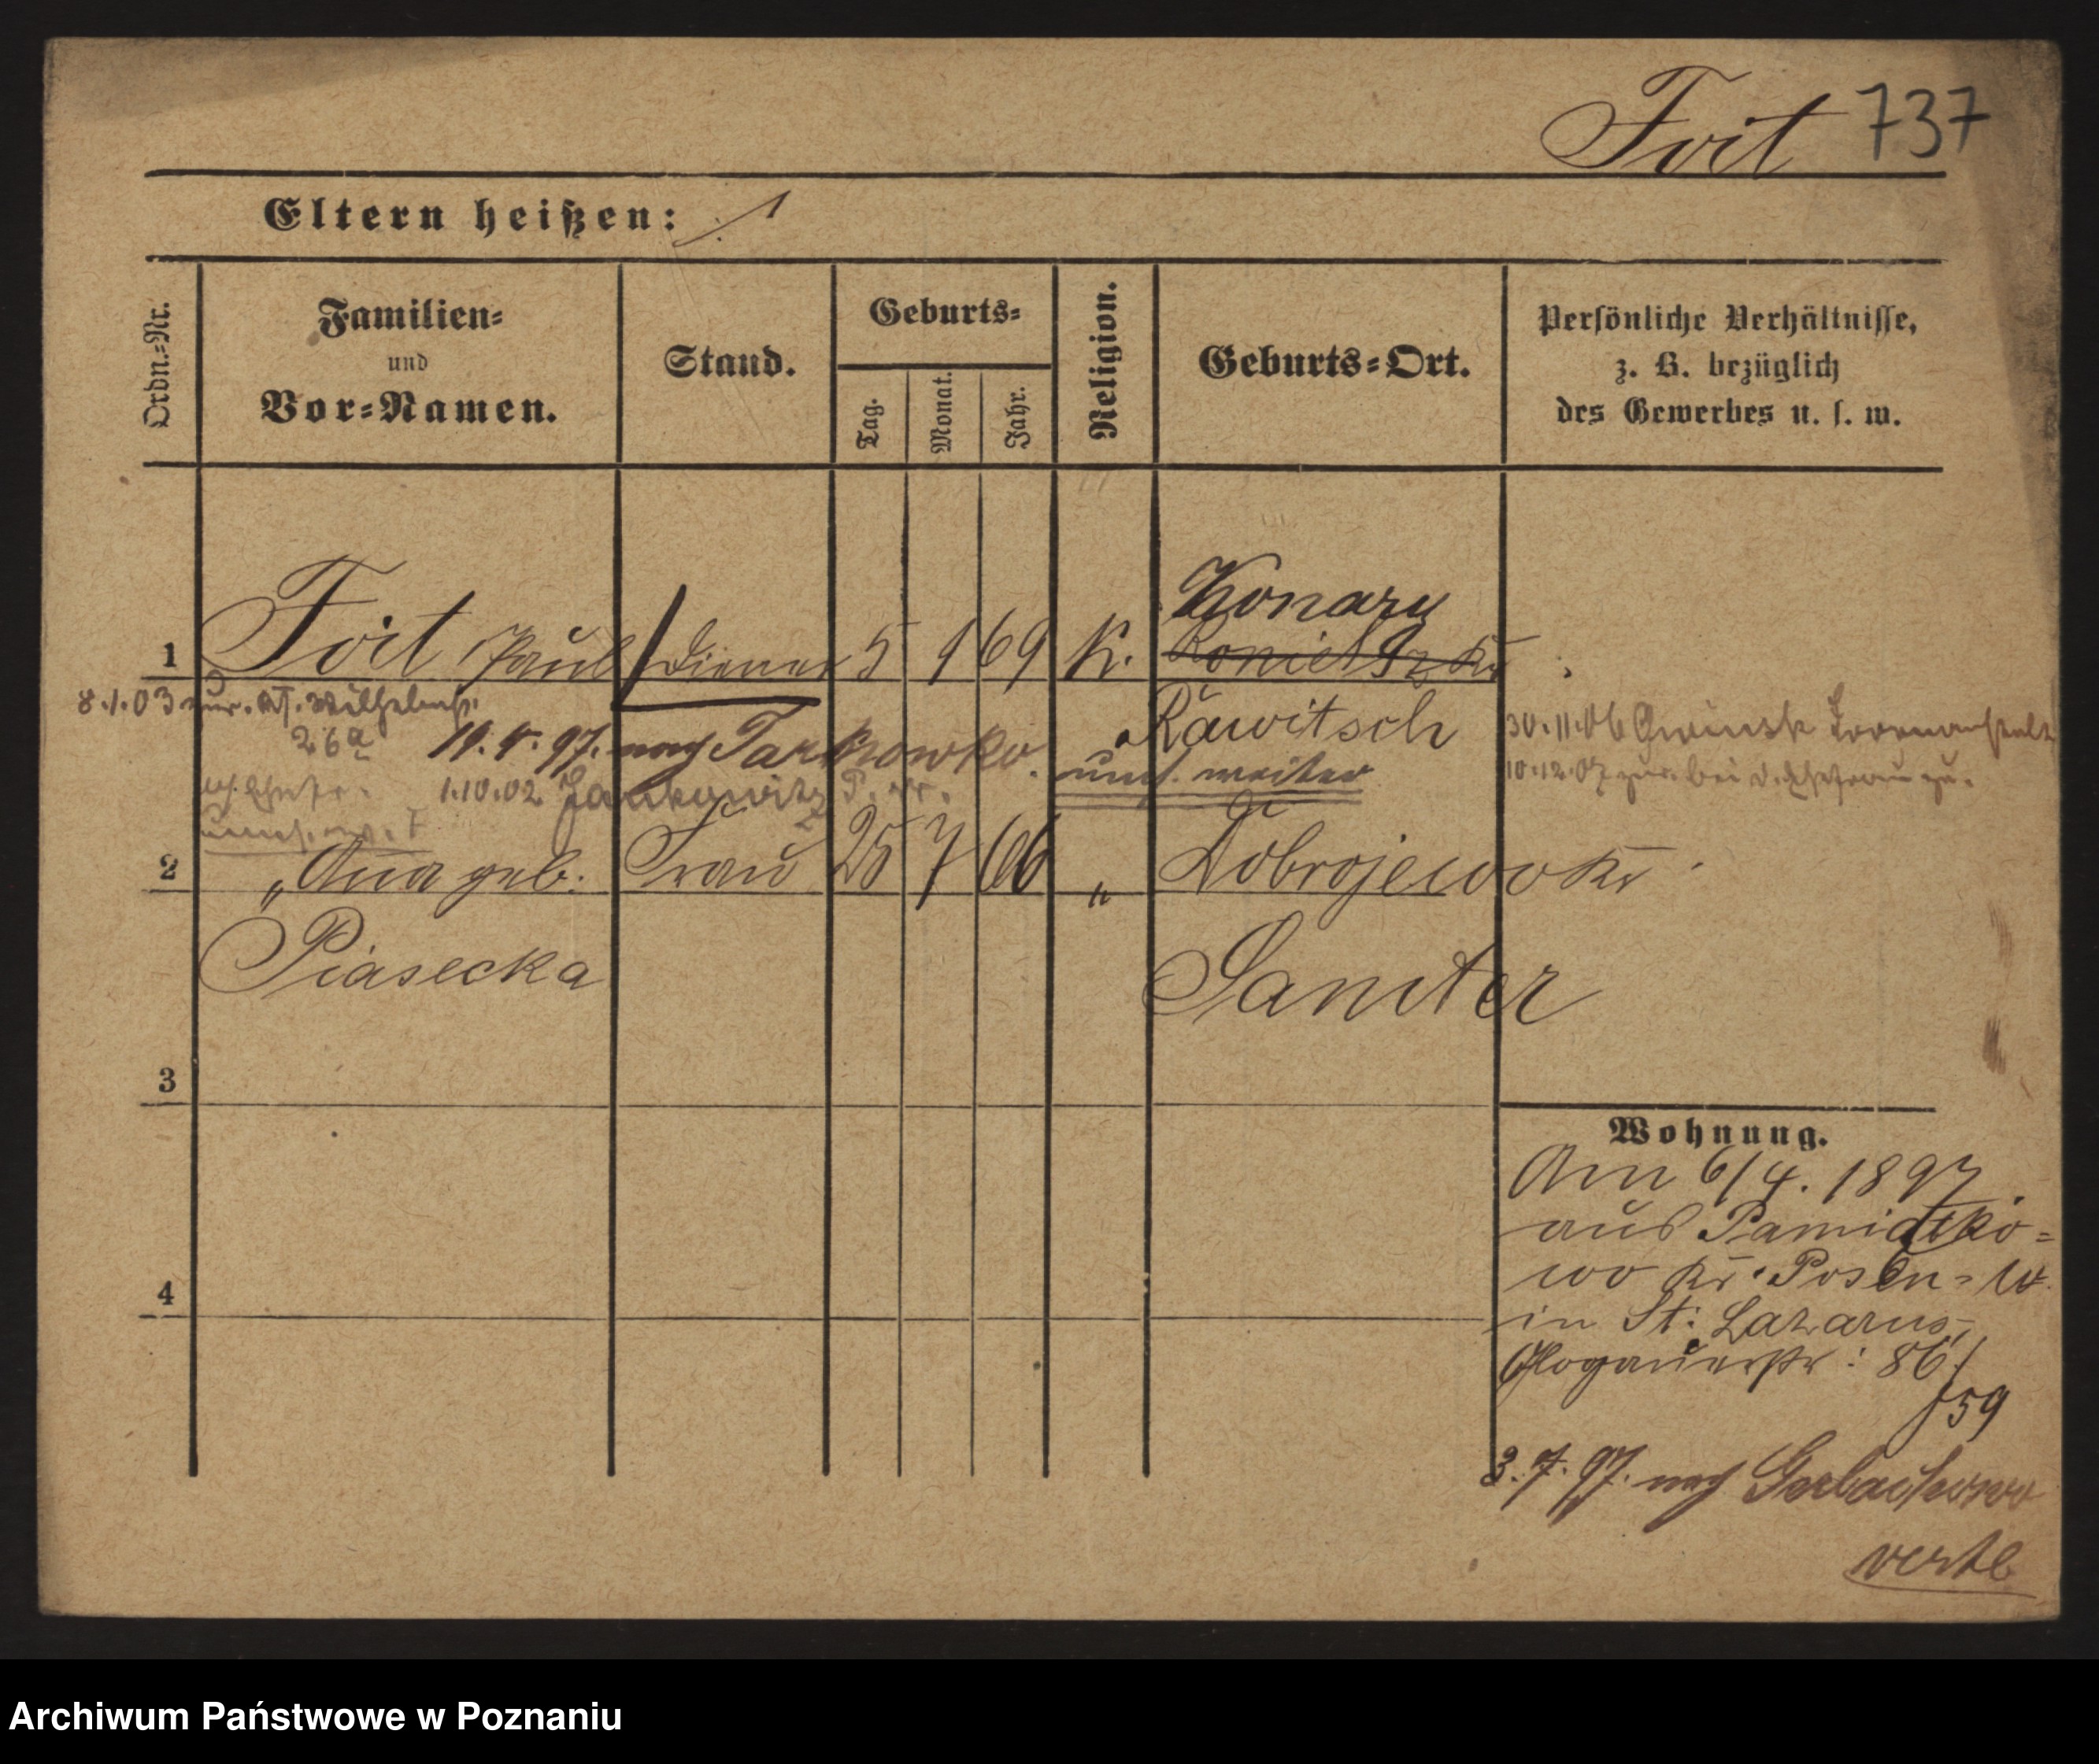 Foit 737
Eltern heißen: ./.
Ordn.-Nr.
Familien-
und
Vor-Namen.
Stand.
Geburts-
Tag.
Monat.
Jahr.
Religion.
Geburts-Ort.
Persönliche Verhältnisse,
z. B. bezüglich
des Gewerbes u. s. w.
Konary
1 Foit Paul Diener 5 1 69 K.
Rawitsch
8.1.03 zur.
26a
19.5.97. nach Tarnowko
umst. weiter
30.11.06
10.12.07 zur. bei d. Ehefrau zu.
1.10.02 Jankowitz
2 " Anna geb. Frau 25 7 66 " Dobrojewo Kr.
Piasecka
Samter
3
4
Wohnung.
Am 6/4. 1897
aus Pamiatko=
wo Kr. Posen=W.
in St: Lazarus,
Glogauerstr: 86/
59
3.7.97. nach
vertl
Archiwum Państwowe w Poznaniu